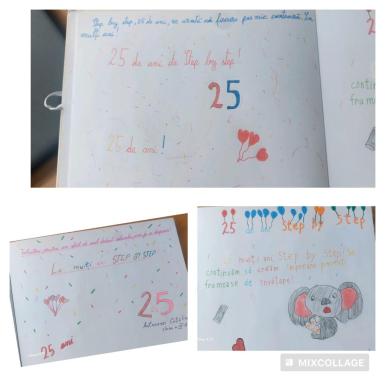 Step by step, 25 de ani, ne arată că fiecare pas mic contează. La
mulți ani!
25 de ani de Step by step!
25
25 de ani!
contin
frumoas
La mulți ani STEP BY STEP
25
25 ani
25 Step by Step
La mulți ani Step by Step! Să
continuăm să creăm împreună povești
frumoase de învățare!
MIXCOLLAGE